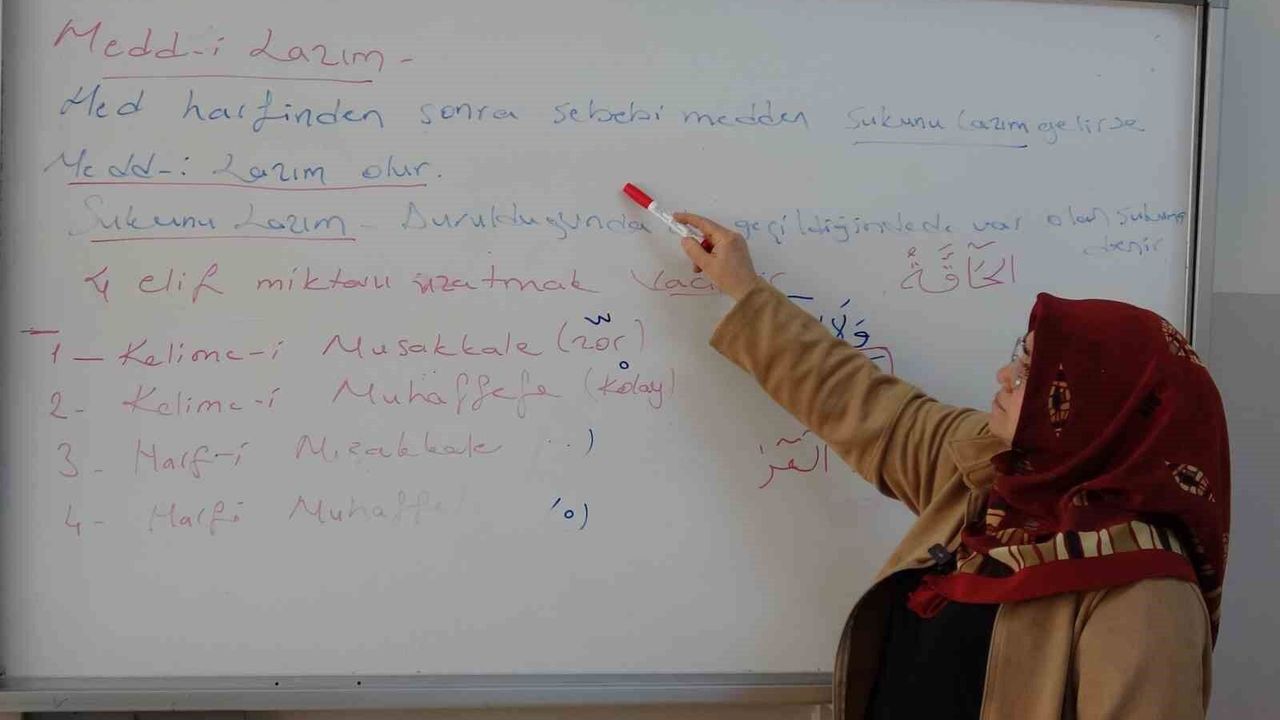 Medd-i Lazım -
Med harfinden sonra sebebi medden sukunu lazım gelirse
Medd-i Lazım olur.
Sukunu Lazım - Durulduğunda geçildiğindede var olan sukuna denir
الحَآقَّةُ
4 elif miktarı uzatmak
وَلَا
1 - Kelime-i Musakkale (zor)
2 - Kelime-i Muhaffefe (Kolay)
3 - Harf-i Misakkale
4 - Harfi